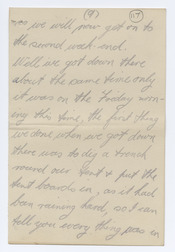 (9) 117
we will now get on to
the second week-end.
Well we got down there
about the same time only
it was on the Friday morn-
ing this time, the first thing
we done when we got down
there was to dig a trench
round our tent & put the
tent boards in, as it had
been raining hard, so I can
tell you every thing was in